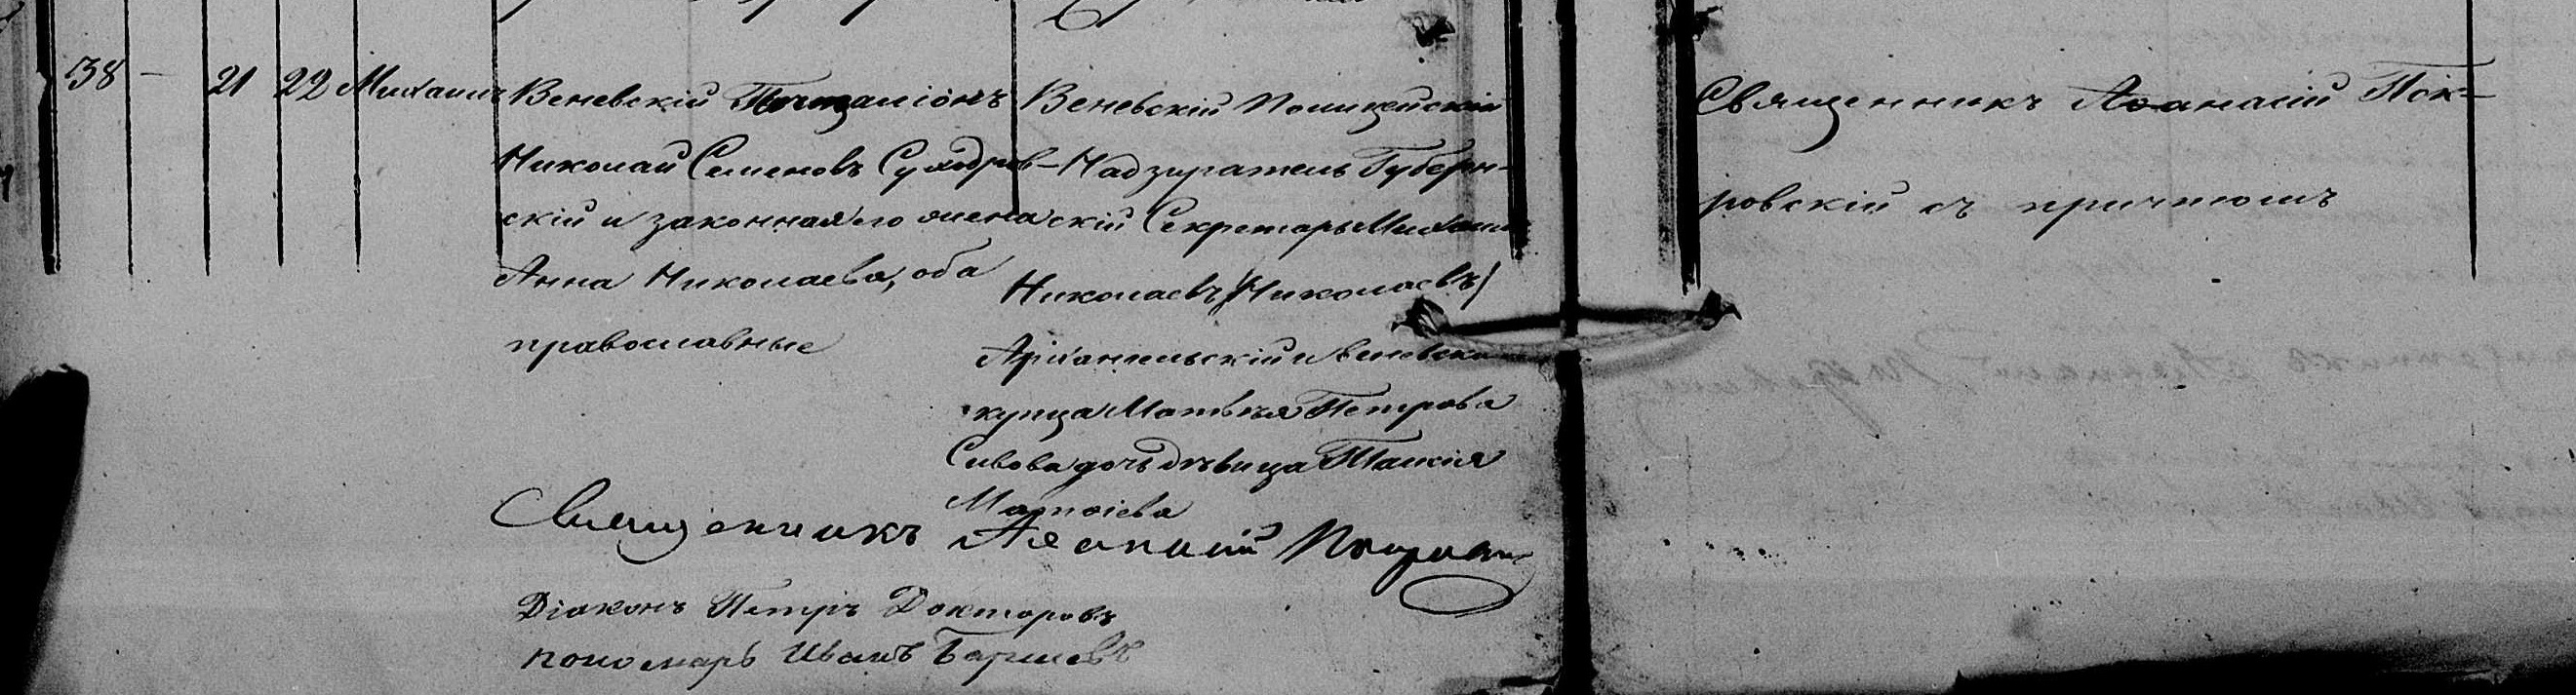 38 — 21 22 Михаилъ
Веневскій Почталіонъ
Николай Семеновъ Суходров-
скій и законная его жена
Анна Николаева, оба
православные
Веневскій Полицейскій
Надзиратель Губерн-
скій Секретарь Михаилъ
Николаевъ /Николаевъ/
Архангельскій и Веневска
купца Матвѣя Петрова
дочь дѣвица
Матѳіева
Священникъ Аѳанасій Пок-
ровскій съ причтомъ
Священникъ Аѳанасій Покровскій
Діаконъ Петръ Докторовъ
пономарь Иванъ